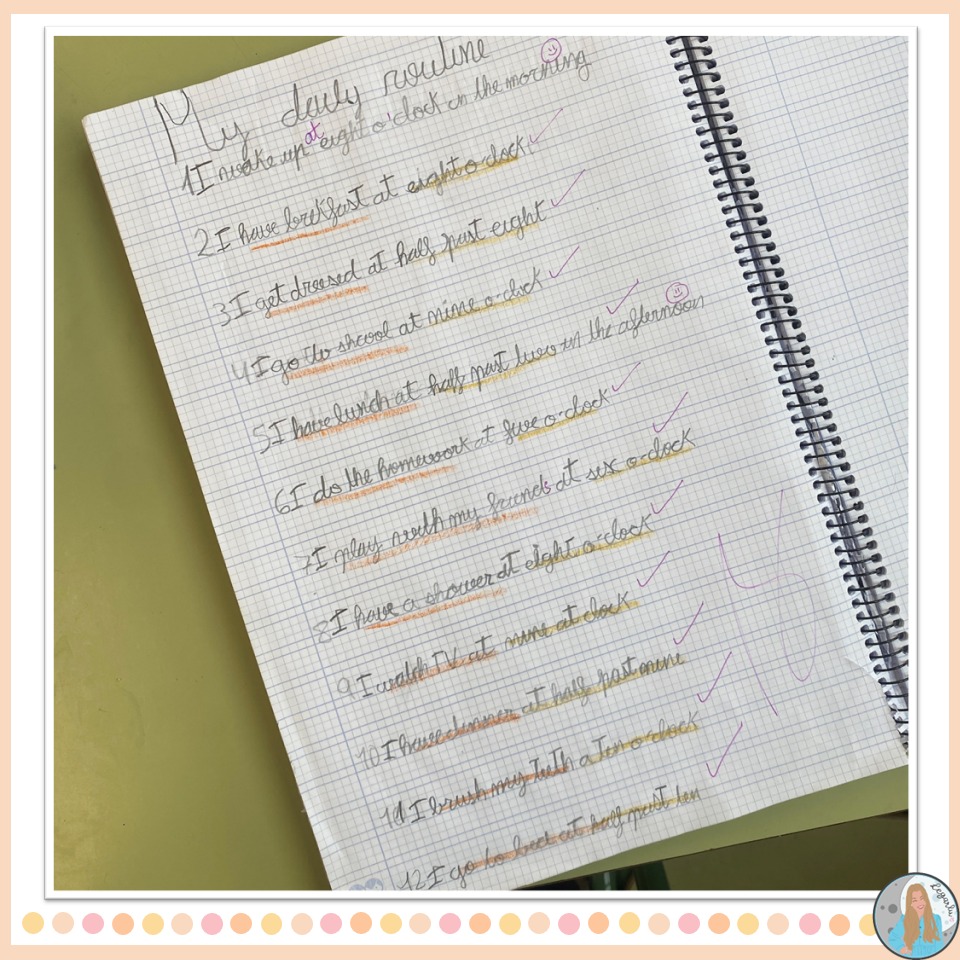 My daily routine
1 I wake up at eight o'clock in the morning
2 I have brekfast at eight o'clock
3 I get dressed at half past eight
4 I go to shcool at nine o-clock
5 I have lunch at half past two in the afternoon
6 I do the homework at five o-clock
7 I play with my friends at six o-clock
8 I have a shower at eight o-clock
9 I watch TV at nine at clock
10 I have dinner at half past nine
11 I brush my teeth a ten o-clock
12 I go to bed at half past ten